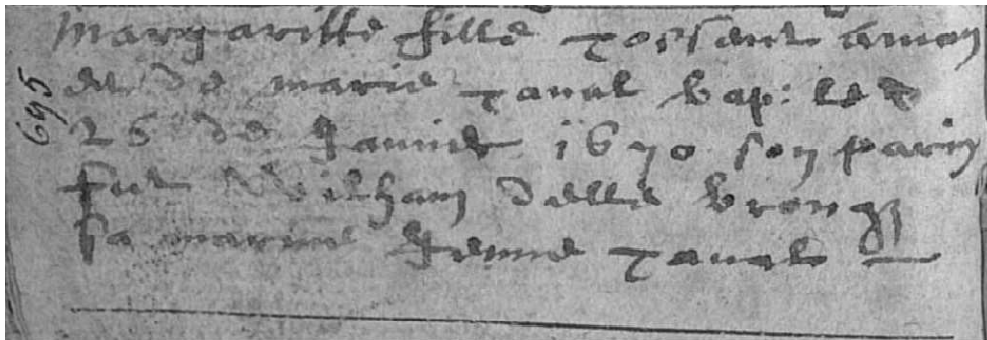 Margaritte fille Tossent amon
et de marie Panal bap: le
25 de Jānvie 1670 son parin
fut Wilham delle brouz
sa marine Jenne Panal
695